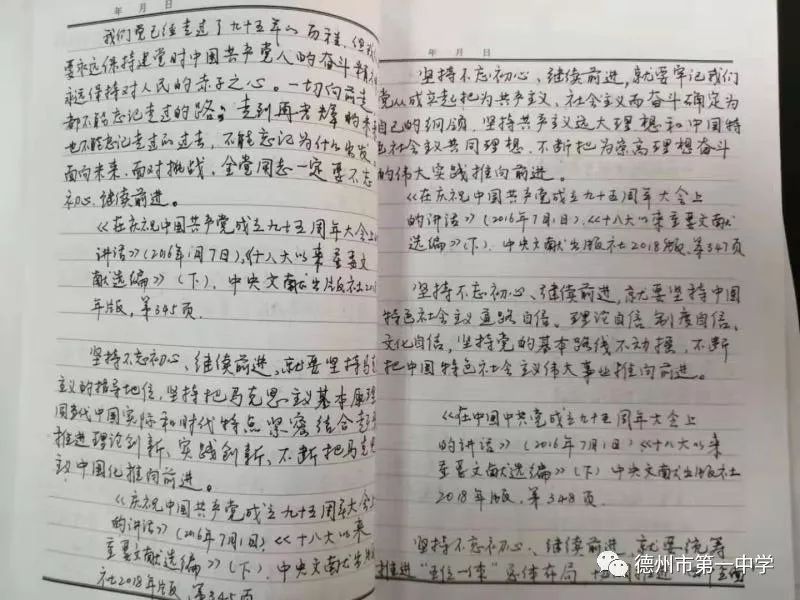 年 月 日
我们党已经走过了九十五年的历程，但我
要永远保持建党时中国共产党人的奋斗精
永远保持对人民的赤子之心。一切向前走
都不能忘记走过的路；走到再光辉的未来
也不能忘记走过的过去，不能忘记为什么出发。
面向未来，面对挑战，全党同志一定要不忘
初心、继续前进。
《在庆祝中国共产党成立九十五周年大会上
讲话》（2016年7月1日），《十八大以来重要文
献选编》（下），中央文献出版社201
年版，第345页
坚持不忘初心、继续前进，就要坚持马
主义的指导地位，坚持把马克思主义基本原理
同当代中国实际和时代特点紧密结合起来
推进理论创新、实践创新，不断把马克思
主义中国化推向前进。
《庆祝中国共产党成立九十五周年大会上
的讲话》（2016年7月1日）《十八大以来
重要文献选编》（下），中央文献出版
社2018年版，第345页
年 月 日
坚持不忘初心、继续前进，就要牢记我们
党从成立起把为共产主义、社会主义而奋斗确定为
自己的纲领，坚持共产主义远大理想和中国特
色社会主义共同理想，不断把为崇高理想奋斗
的伟大实践推向前进。
《在庆祝中国共产党成立九十五周年大会上
的讲话》（2016年7月1日），《十八大以来重要文献
选编》（下），中央文献出版社2018版，第347页
坚持不忘初心、继续前进，就要坚持中国
特色社会主义道路自信、理论自信、制度自信、
文化自信，坚持党的基本路线不动摇，不断
把中国特色社会主义伟大事业推向前进。
《在中国中共党成立九十五周年大会上
的讲话》（2016年7月1日）《十八大以来
重要文献选编》（下）中央文献出版社
2018年版，第348页
坚持不忘初心、继续前进，就要统筹
推进“五位一体”总体布局 推进 全面
德州市第一中学